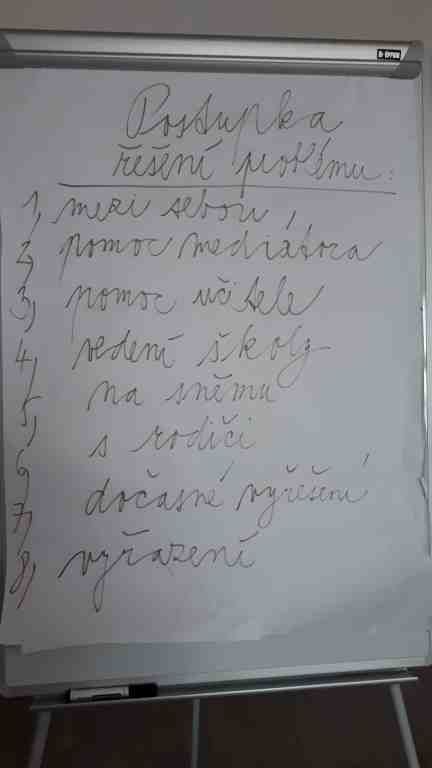 Postupka
řešení problému:
1, mezi sebou,
2, pomoc mediátora
3, pomoc učitele
4, vedení školy
5, na sněmu
6, s rodiči
7, dočasné vyřešení
8, vyřazení